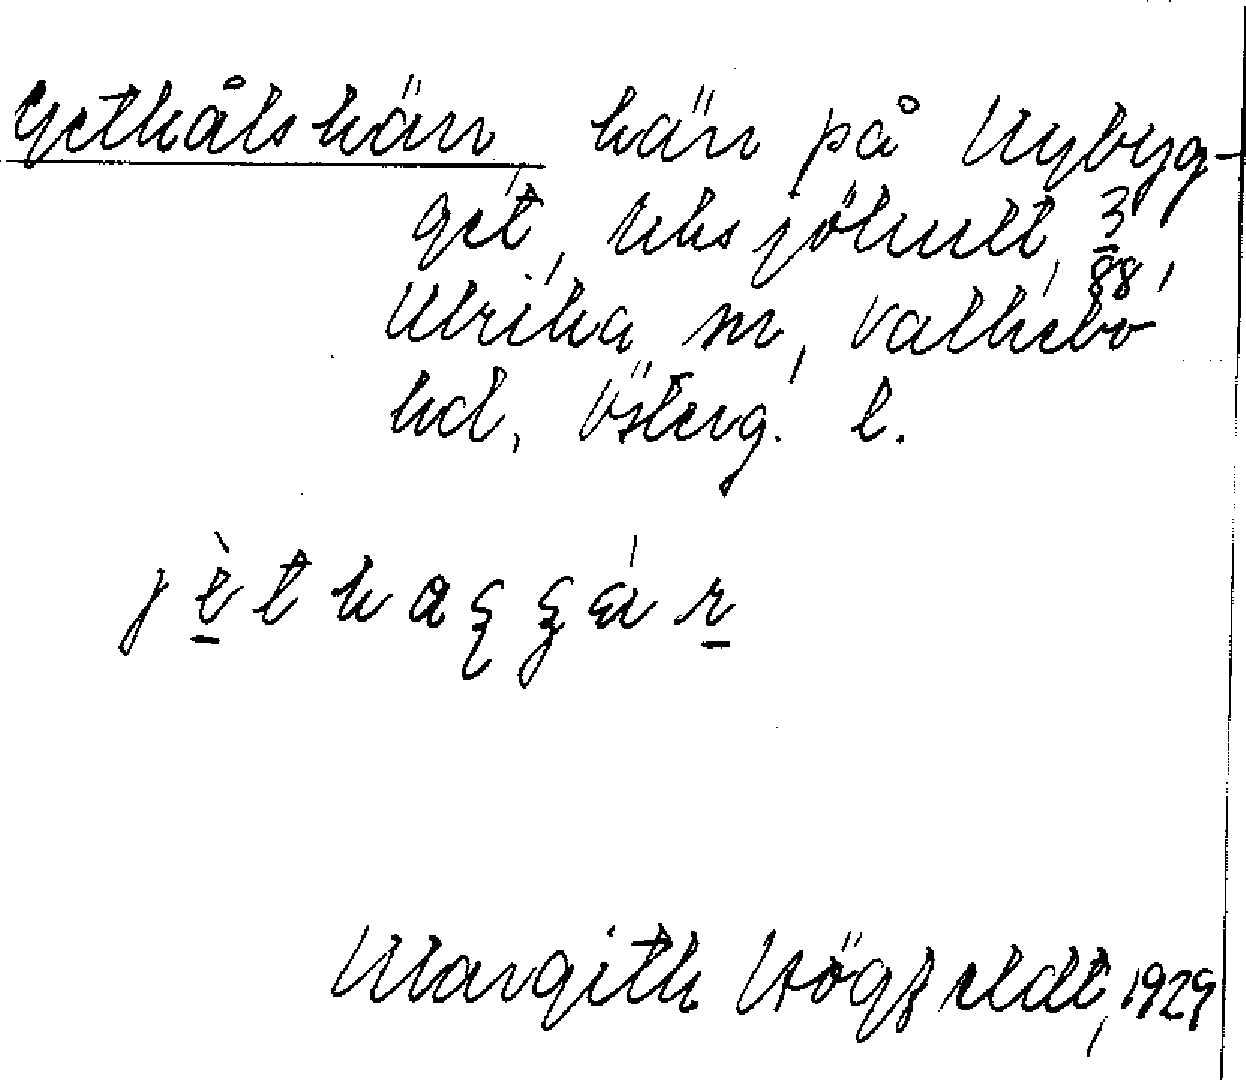 Gethålskärr, kärr på Nybyg-
get, Uksjöhult, 3/88,
Ulrika sn, Valkebo
hd, Österg. l.
Margith Högfeldt, 1929